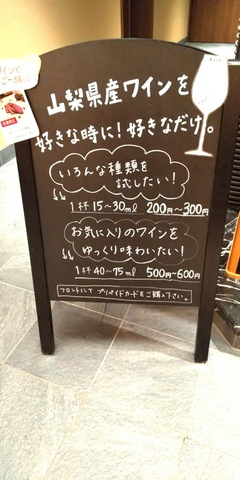 山梨県産ワインを
好きな時に!好きなだけ。
いろんな種類を
試したい!
1杯15~30ml 200円~300円
お気に入りのワインを
ゆっくり味わいたい!
1杯40~75ml 500円~600円
フロントにて プリペイドカードをご購入下さい。